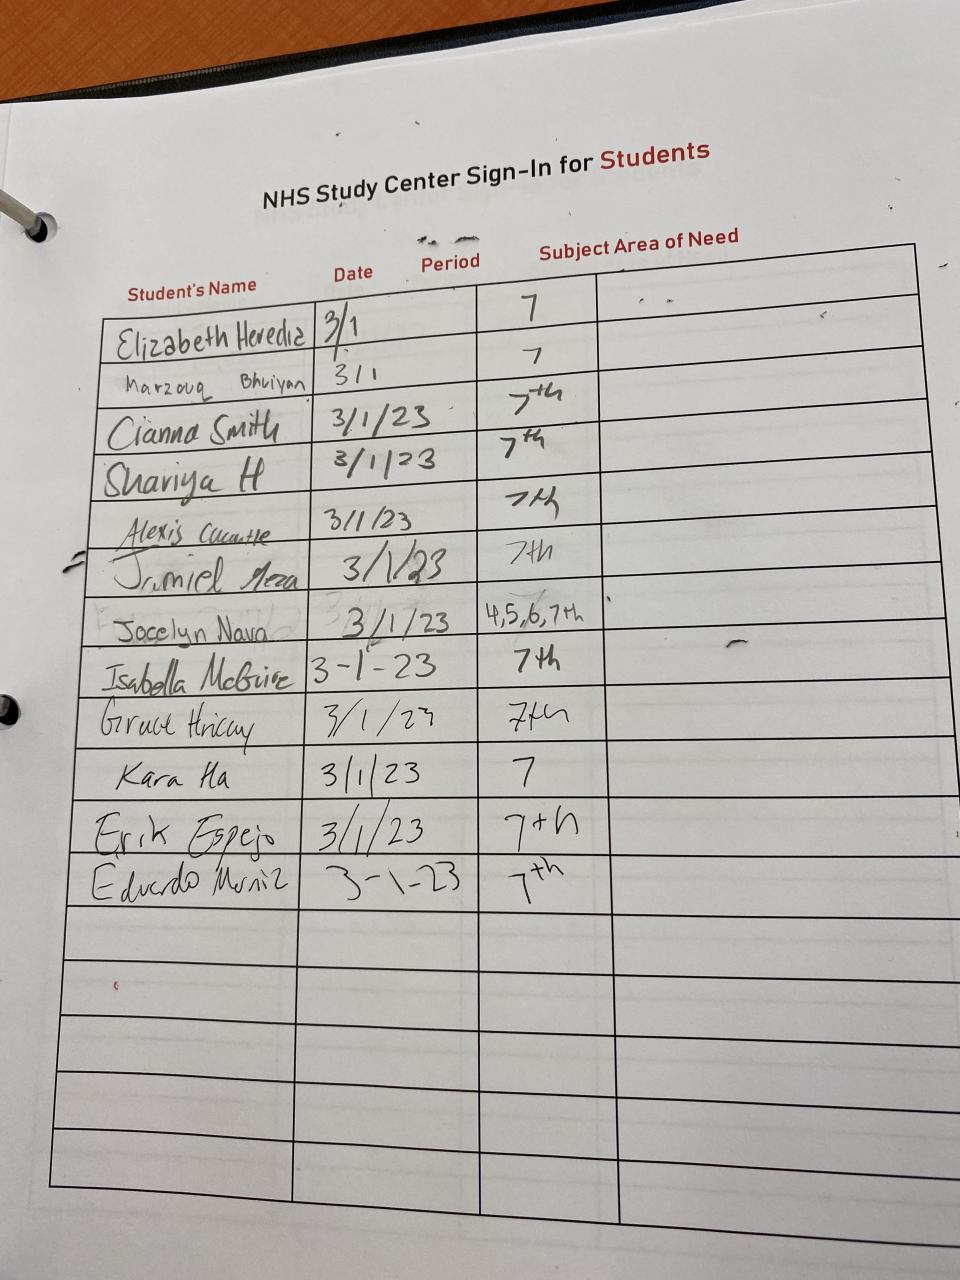 NHS Study Center Sign-In for Students
Student's Name Date Period Subject Area of Need
Elizabeth Heredia 3/1 7
Marzouq Bhuiyan 3/1 7
Cianna Smith 3/1/23 7th
Shariya H 3/1/23 7th
Alexis 3/1/23 7th
Jamiel Meza 3/1/23 7th
Jocelyn Nava 3/1/23 4,5,6,7th
Isabella McGuire 3-1-23 7th
3/1/23 7th
Kara Ha 3/1/23 7
Erik Espejo 3/1/23 7th
Eduardo Muniz 3-1-23 7th